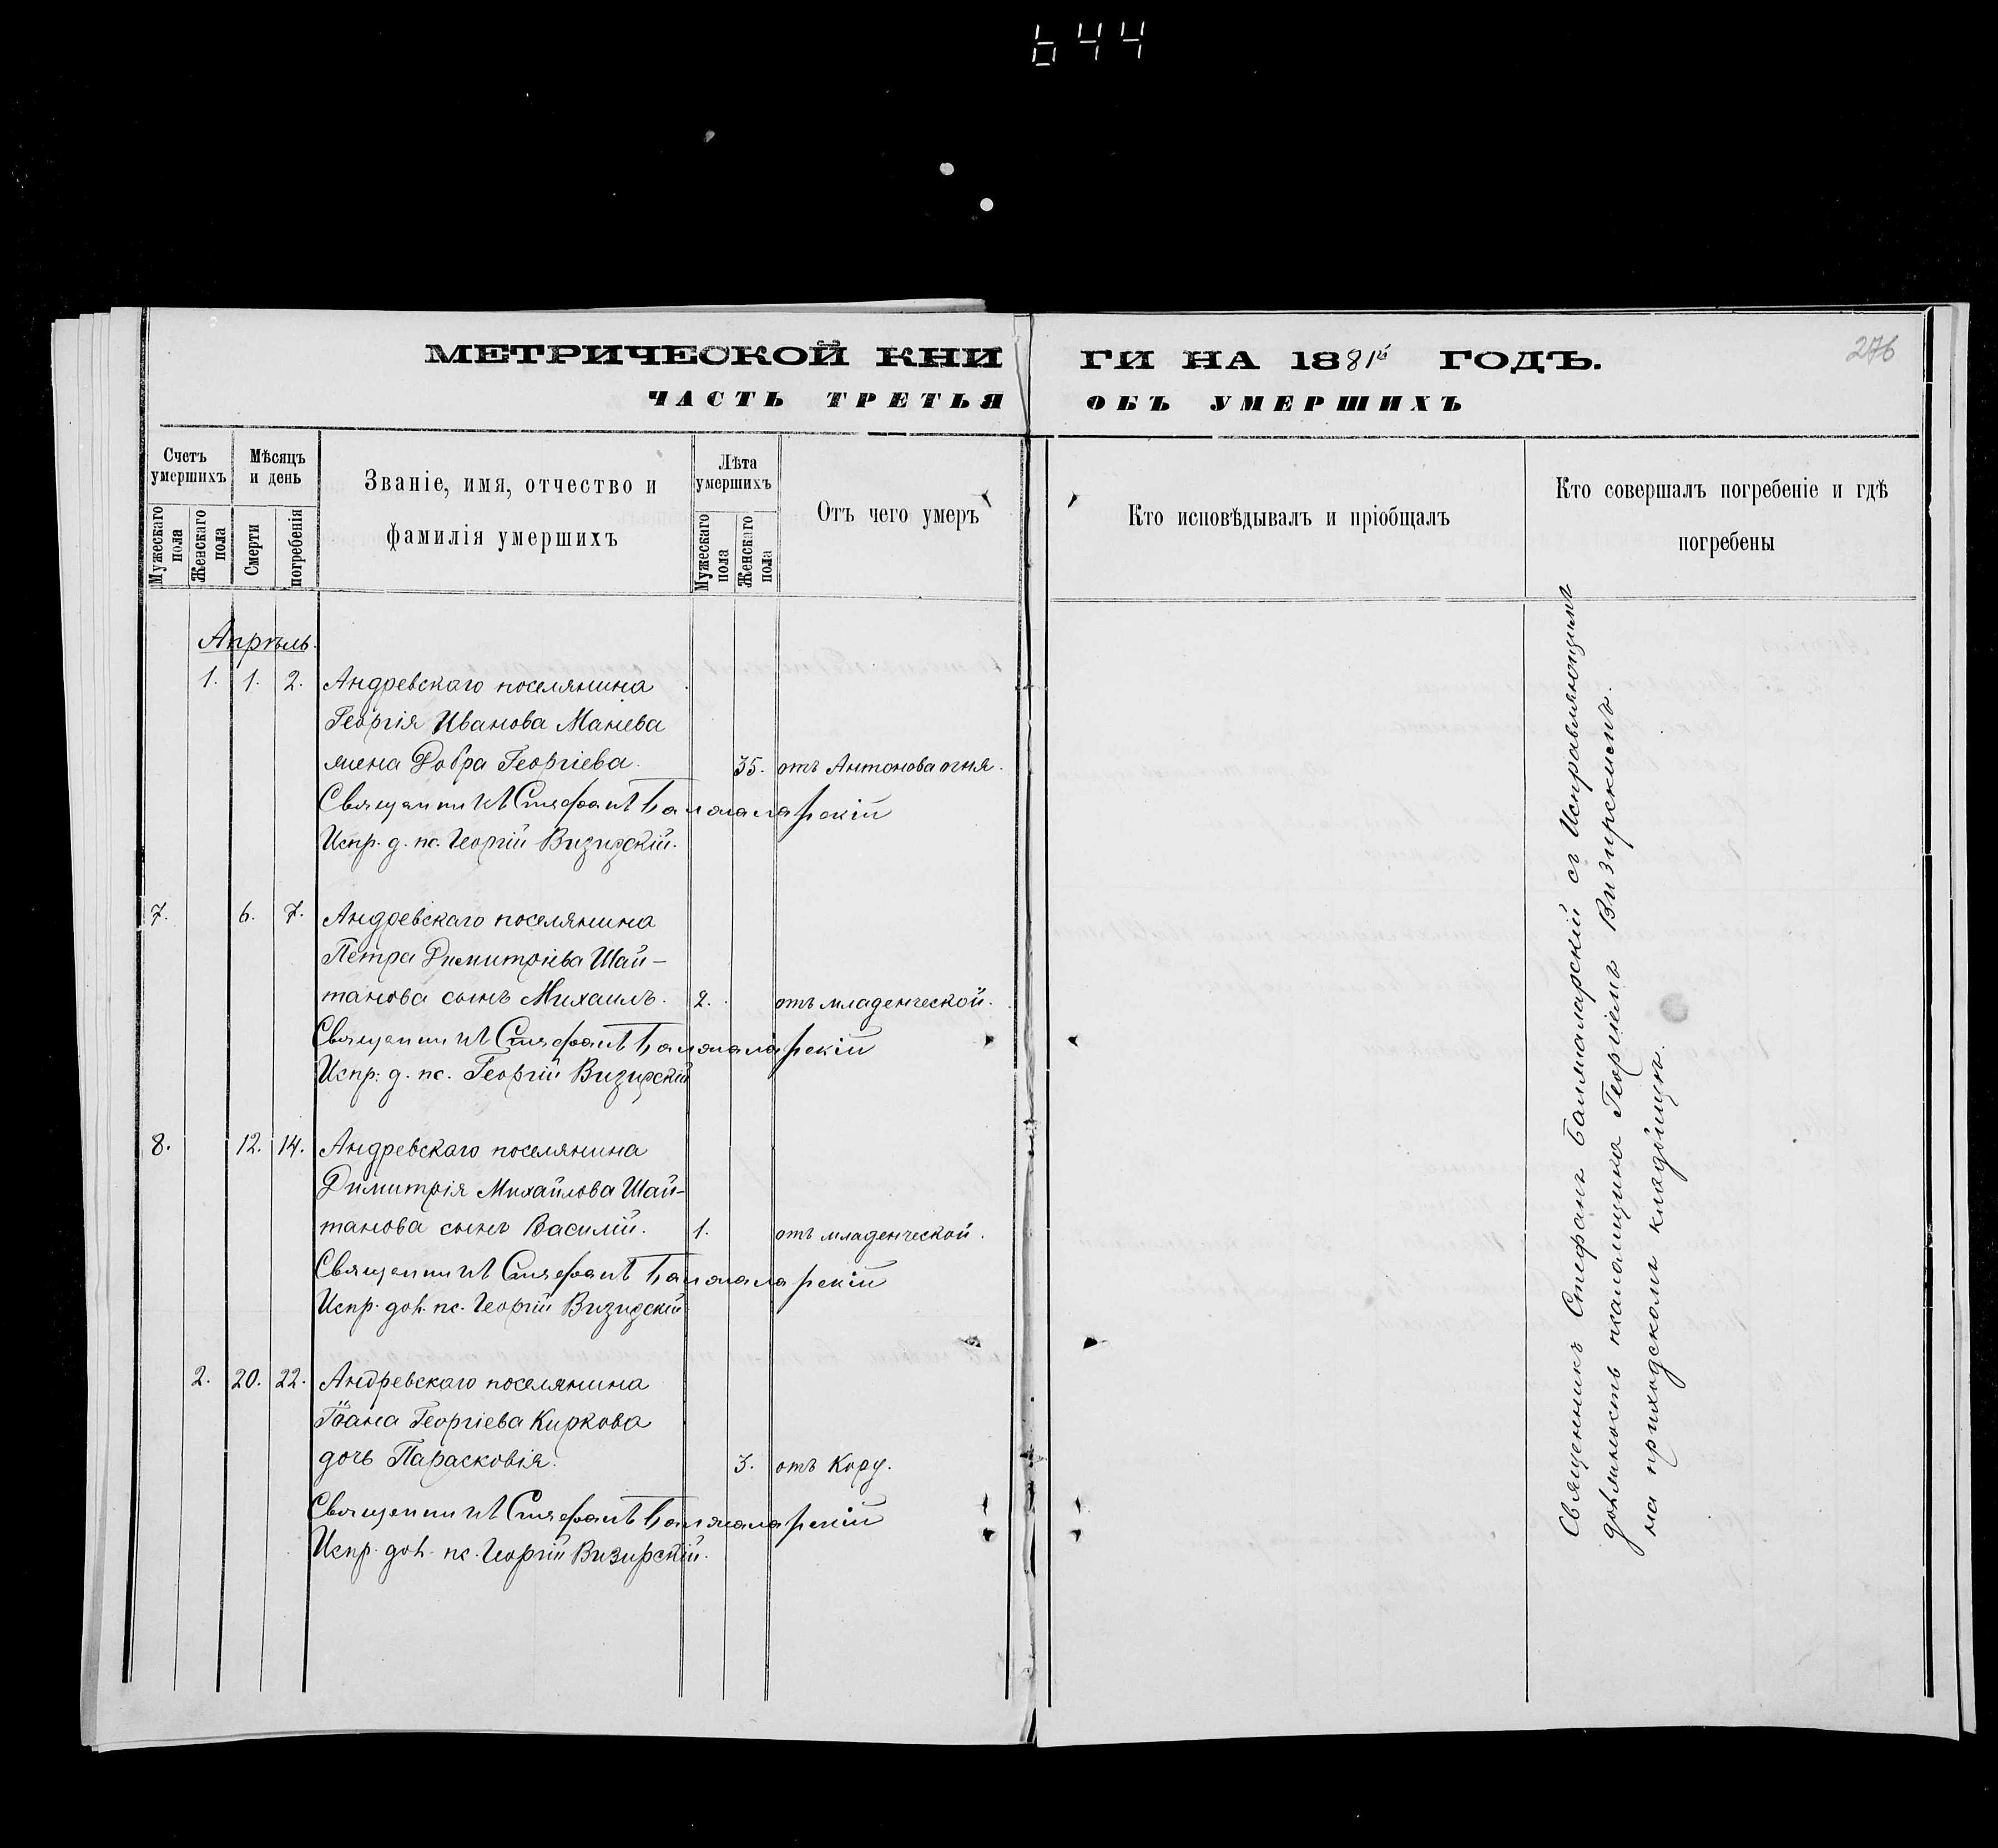 644
МЕТРИЧЕСКОЙ КНИ ГИ НА 1881й ГОДЪ.
276
ЧАСТЬ ТРЕТЬЯ ОБЪ УМЕРШИХЪ
Счетъ умершихъ
Мужескаго пола
Женскаго пола
Мѣсяцъ и день
Смерти
погребенія
Званіе, имя, отчество и
фамилія умершихъ
Лѣта умершихъ
Мужескаго пола
Женскаго пола
Отъ чего умеръ
Кто исповѣдывалъ и пріобщалъ
Кто совершалъ погребеніе и гдѣ
погребены
Апрѣль.
1. 1. 2. Андревскаго поселянина
Георгія Иванова Манева
жена Добра Георгіева. 35. отъ Антонова огня.
Священникъ Стефанъ Балжаларскій
Испр. д. пс. Георгій Визирскій.
7. 6. 7. Андреевскаго поселянина
Петра Димитріева Шай-
танова сынъ Михаилъ. 2. отъ младенческой.
Священникъ Стефанъ Балжаларскій
Испр: д. пс. Георгій Визирскій
8. 12. 14. Андревскаго поселянина
Димитрія Михайлова Шай-
танова сынъ Василій. 1. отъ младенческой.
Священникъ Стефанъ Балжаларскій
Испр. долж. пс. Георгій Визирскій
2. 20. 22. Андревскаго поселянина
Іоана Георгіева Киркова
дочь Парасковія. 3. отъ Кору.
Священникъ Стефанъ Балжаларскій
Испр. долж. пс. Георгій Визирскій.
Священникъ Стефанъ Балжаларскій съ Исправляющимъ
должность псаломщика Георгіемъ Визирскимъ.
на приходскомъ кладбищѣ.